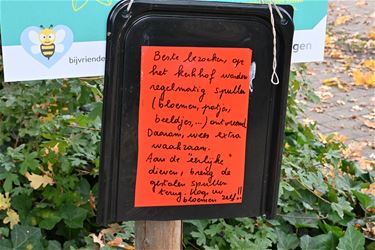 bijvriende
gen
Beste bezoeker, op
het kerkhof worden
regelmatig spullen
(bloemen, potjes,
beeldjes,...) ontvreemd.
Daarom, wees extra
waakzaam.
Aan de "eerlijke"
dieven, breng de
gestolen spullen
terug. Koop uw
bloemen zelf!!